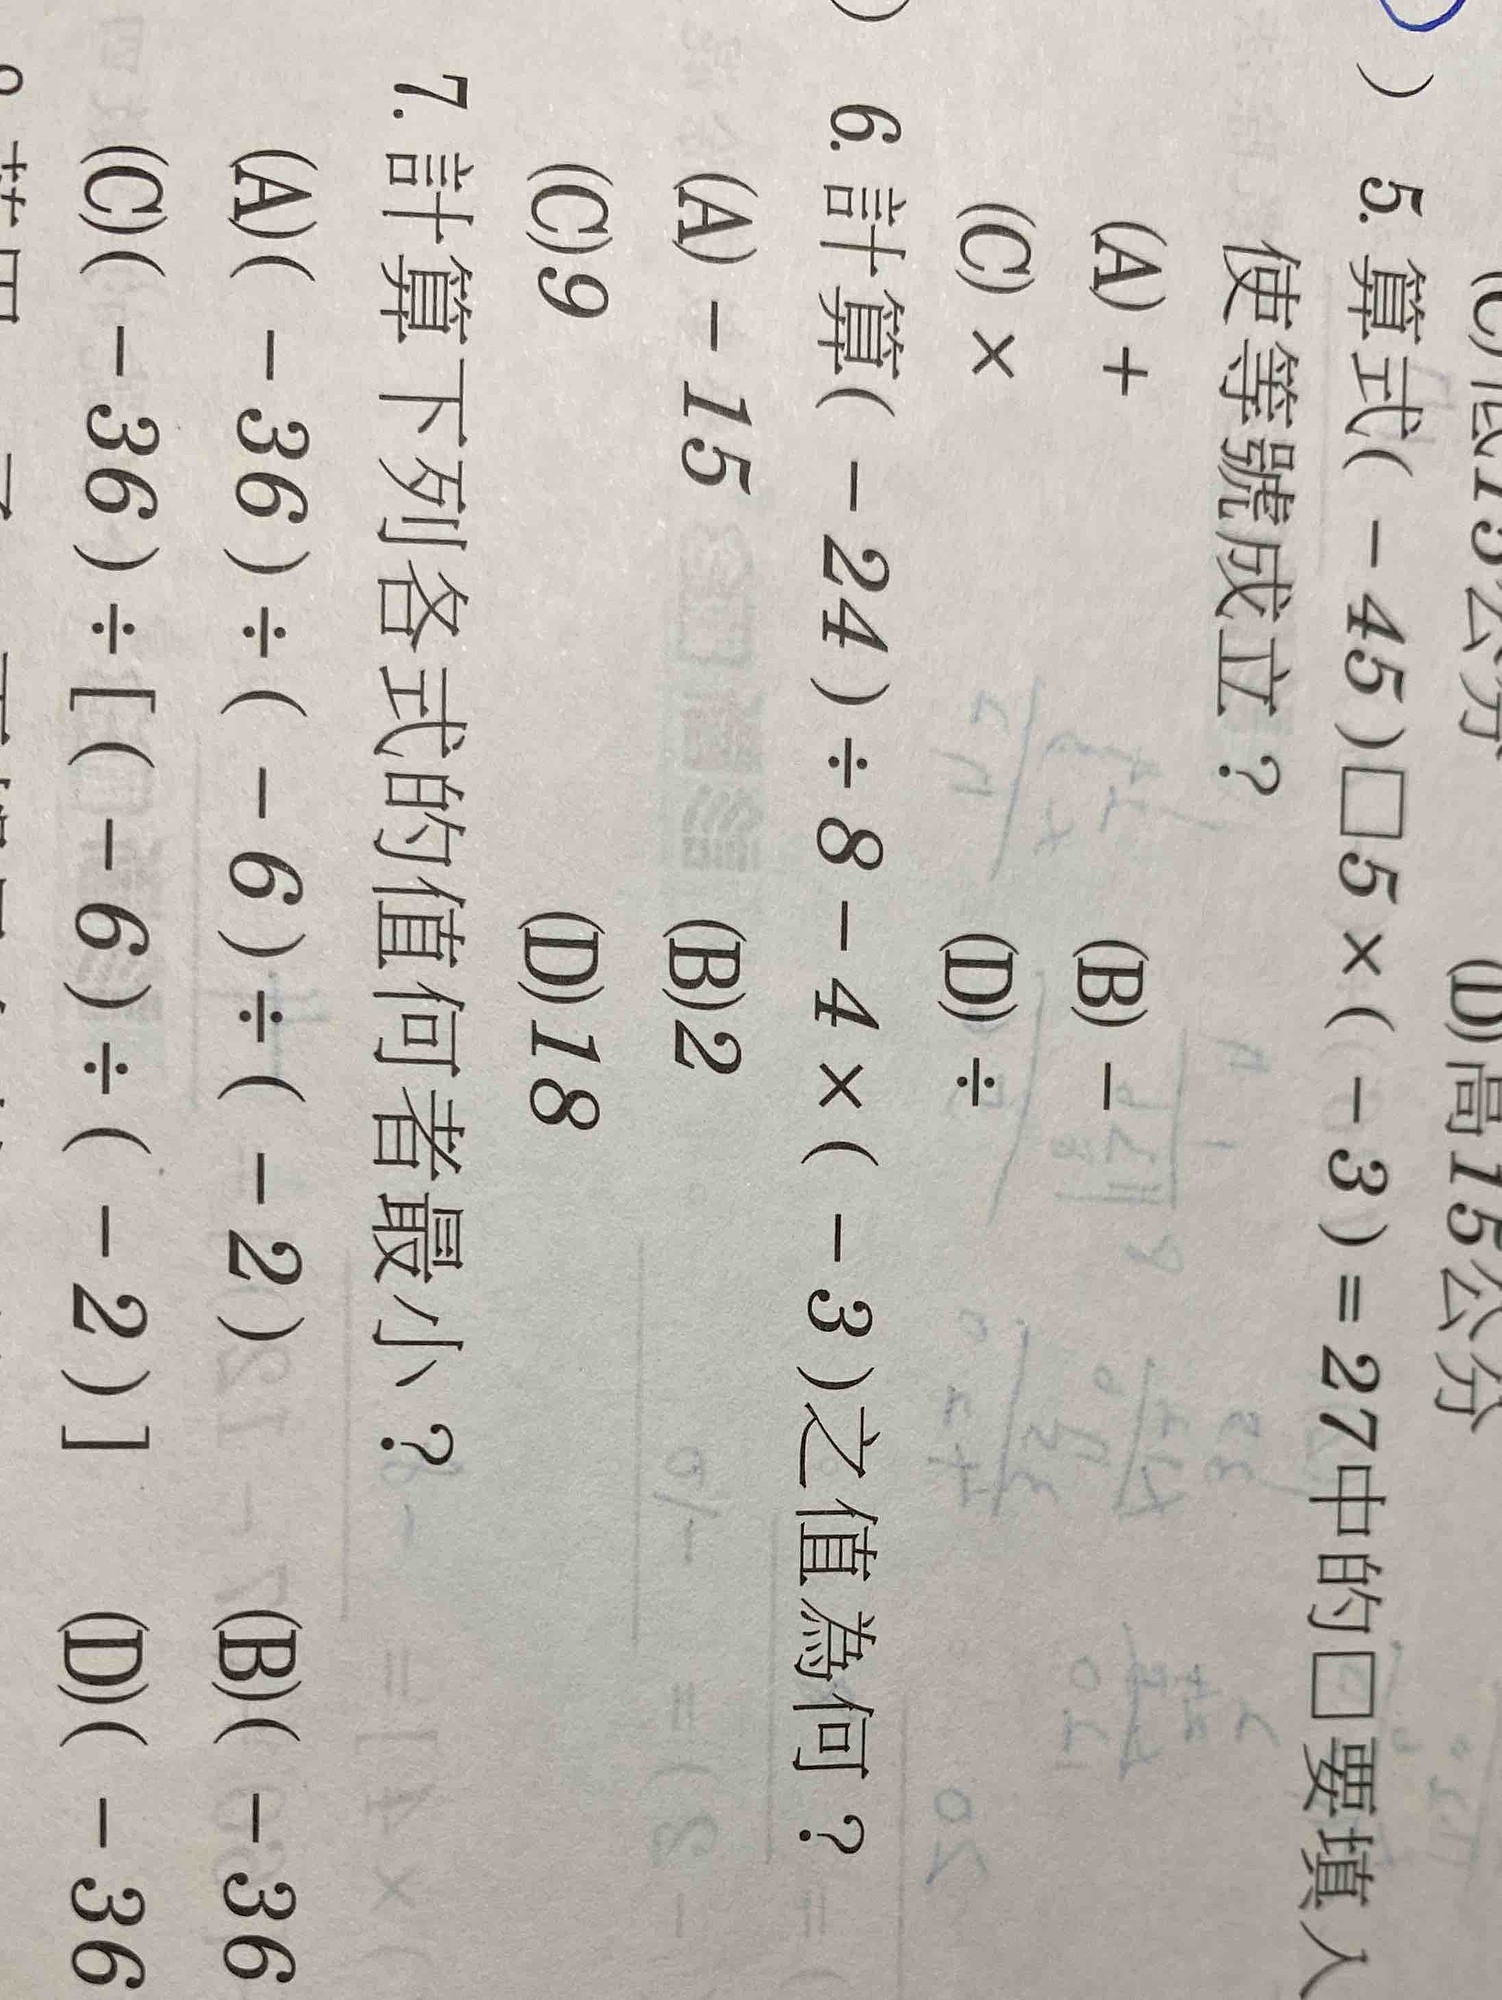 (C)低15公分 (D)高15公分
) 5. 算式( －45)□5×( －3)＝27中的□要填入
使等號成立？
(A)＋ (B)－
(C)× (D)÷
) 6. 計算( －24)÷8－4×( －3)之值為何？
(A)－15 (B)2
(C)9 (D)18
7. 計算下列各式的值何者最小？
(A)( －36)÷( －6)÷( －2) (B)( －36
(C)( －36)÷[( －6)÷( －2)] (D)( －36